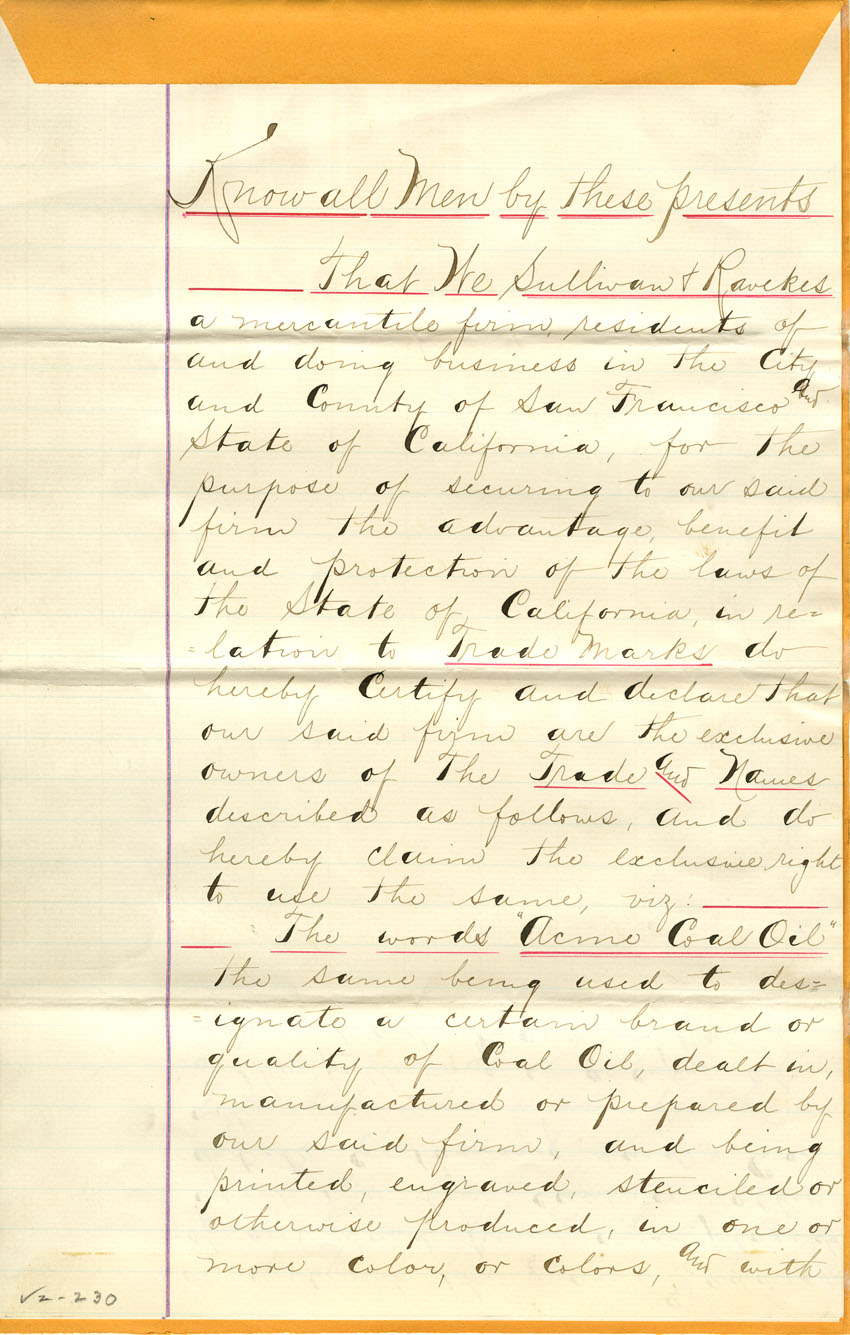 Know all Men by these presents
That We Sullivan & Ravekes
a mercantile firm, residents of
and doing business in the City
and County of San Francisco and
State of California, for the
purpose of securing to our said
firm the advantage, benefit
and protection of the laws of
the State of California, in re=
=lation to Trade Marks do
hereby Certify and declare that
our said firm are the exclusive
owners of the Trade and Names
described as follows, and do
hereby claim the exclusive right
to use the same, viz:
The words "Acme Coal Oil"
the same being used to des=
=ignate a certain brand or
quality of Coal Oil, dealt in,
manufactured or prepared by
our said firm, and being
printed, engraved, stenciled or
otherwise produced, in one or
more color, or colors, and with
√2-230